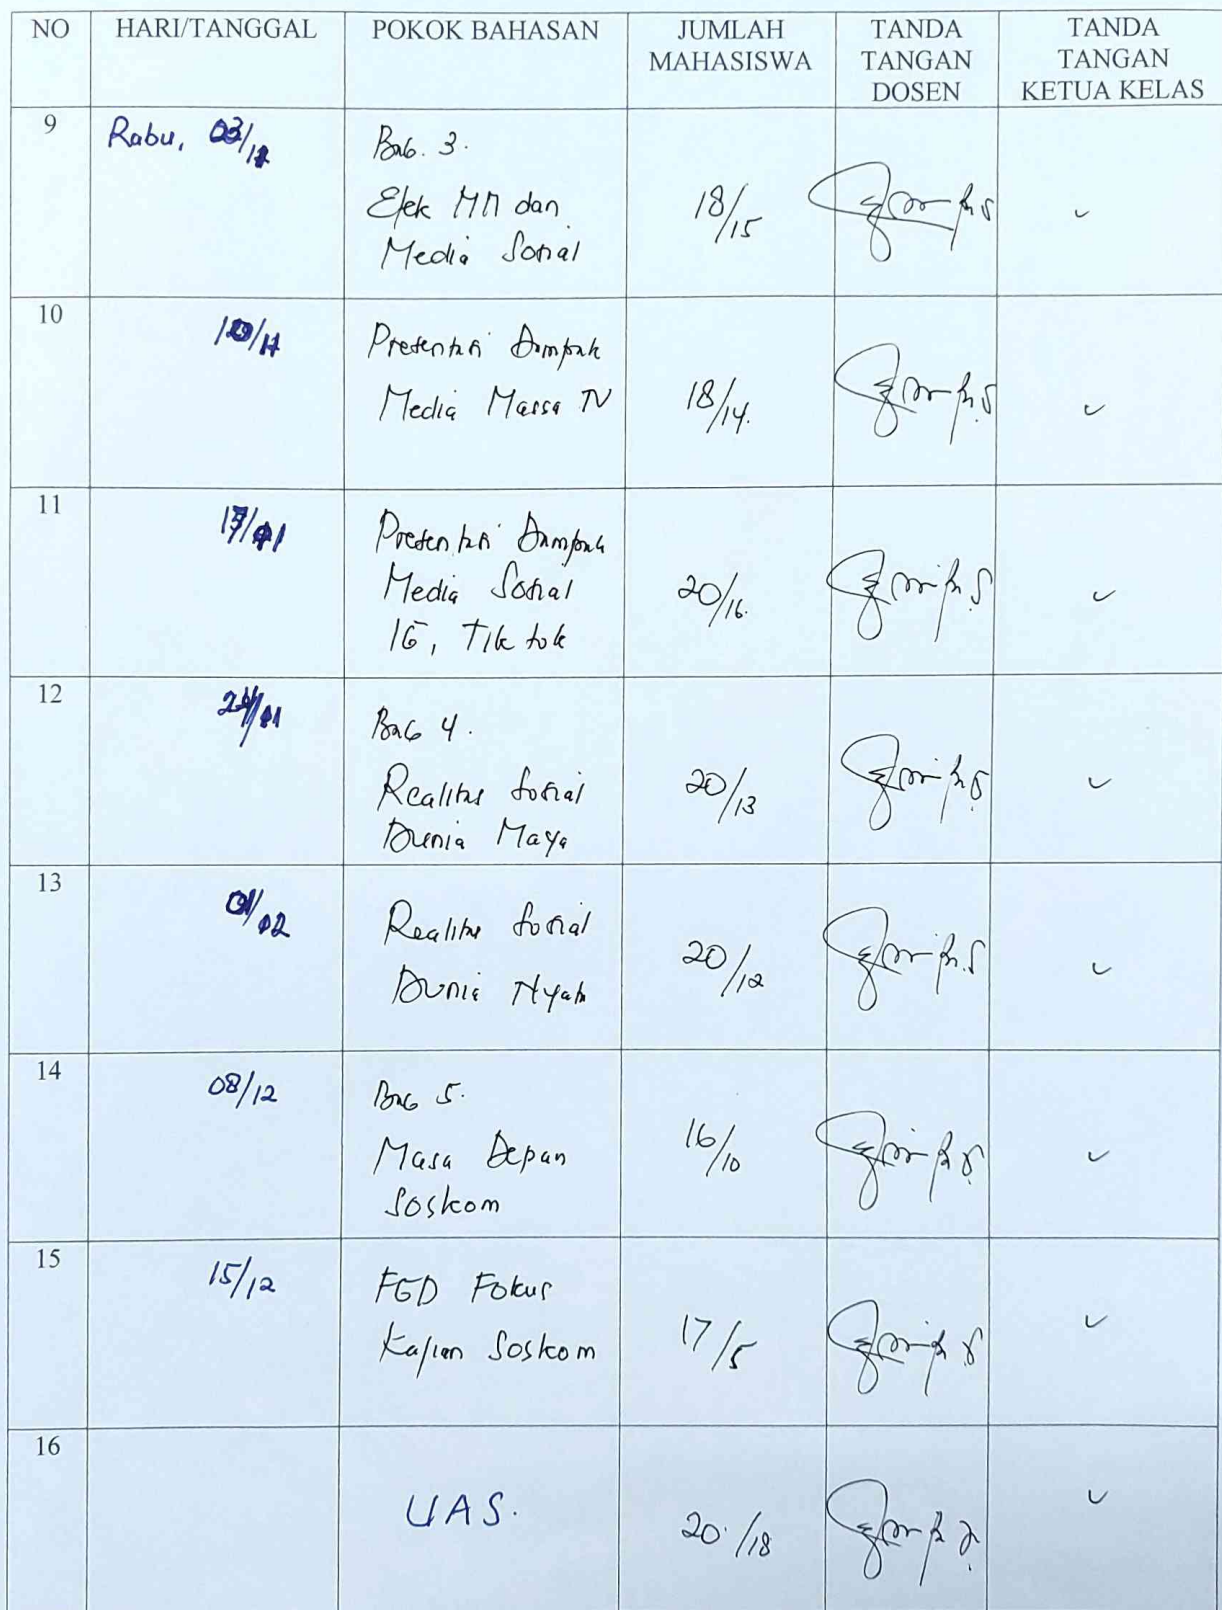 NO HARI/TANGGAL POKOK BAHASAN JUMLAH MAHASISWA TANDA TANGAN DOSEN TANDA TANGAN KETUA KELAS
9 Rabu, Bab. 3.
Efek MM dan
Media Sosial
18/15
10
Presentasi Dampak
Media Massa TV
18/14.
11
Presentasi Dampak
Media Sosial
IG, Tik tok
20/16.
12
Bab 4.
Realitas Sosial
Dunia Maya
20/13
13
Realitas Sosial
Dunia Nyata
20/12
14 08/12 Bab 5.
Masa Depan
Soskom
16/10
15 15/12 FGD Fokus
Kajian Soskom
17/5
16
UAS.
20/18